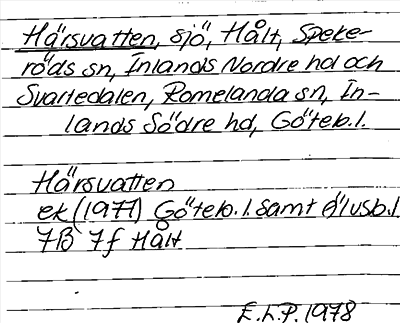 Härsvatten, sjö, Hålt, Speke-
röds sn, Inlands Nordre hd och
Svartedalen, Romelanda sn, In-
lands Södre hd, Göteb.l.
Härsvatten
ek (1977) Göteb.l. samt Älvsb.l
7B 7f Hålt
E.L.P. 1978